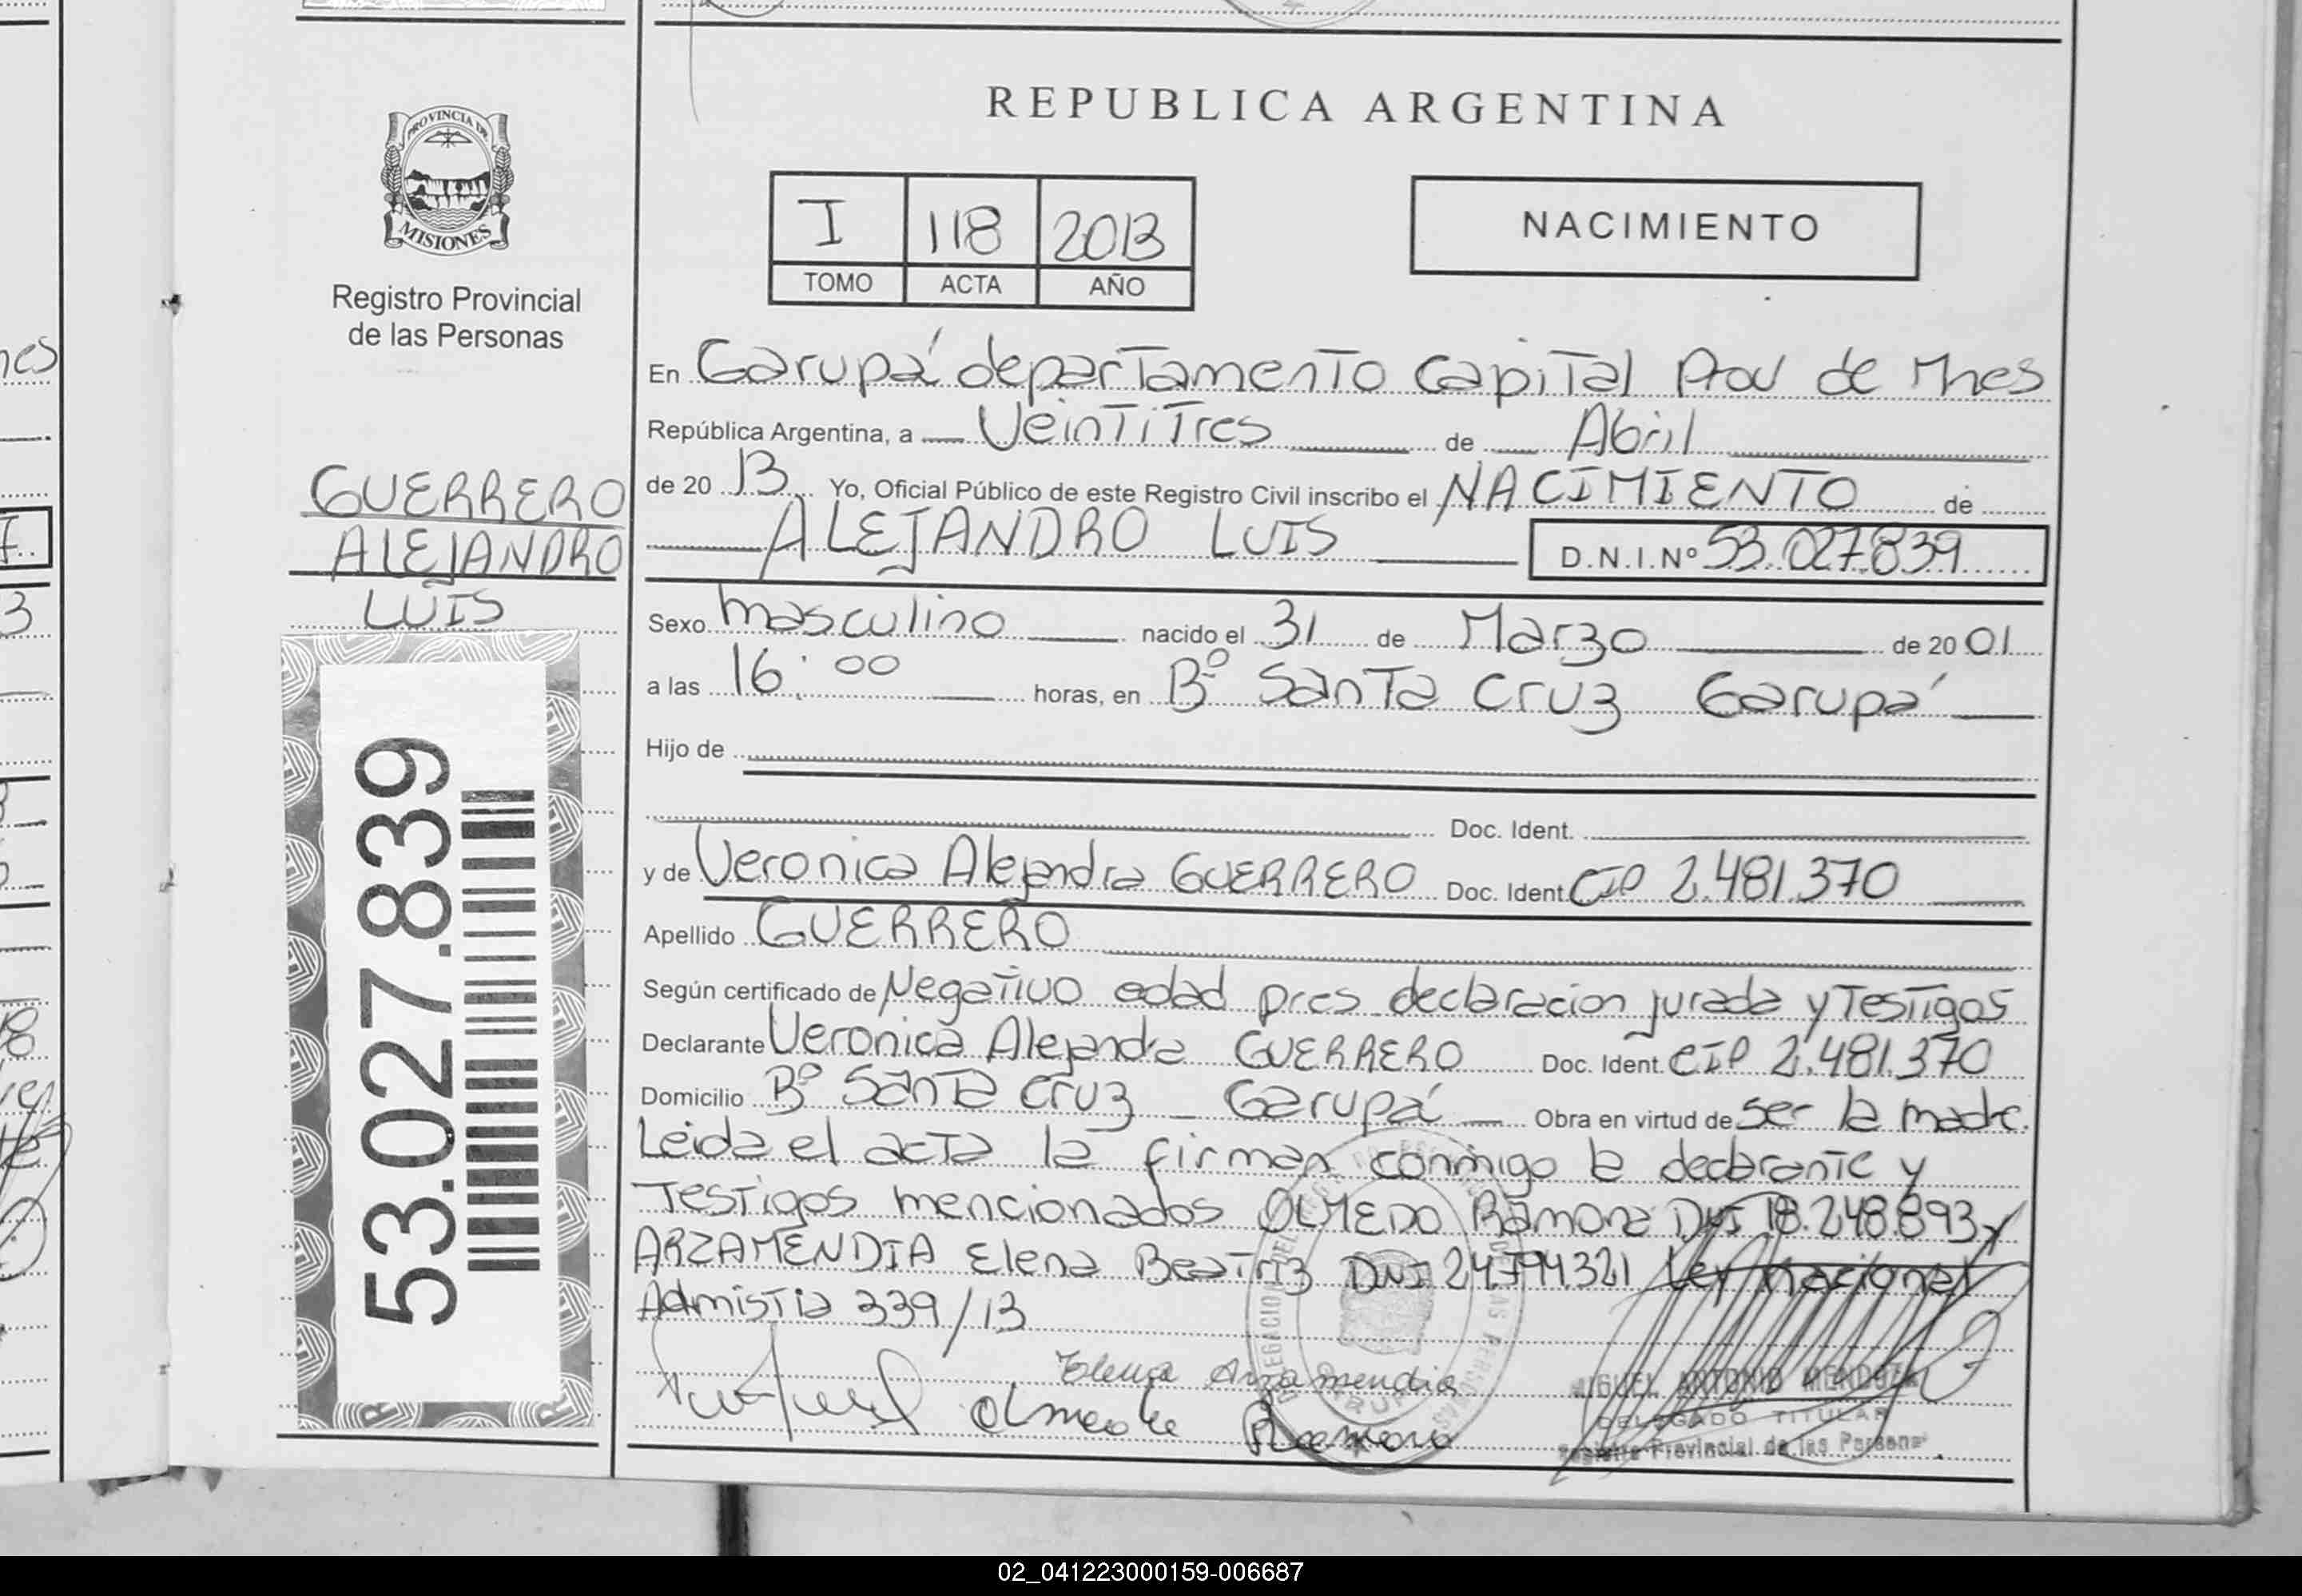 REPUBLICA ARGENTINA
PROVINCIA DE
MISIONES
Registro Provincial
de las Personas
I 118 2013
TOMO ACTA AÑO
NACIMIENTO
En Garupá departamento Capital Prov de Mnes
República Argentina, a Veintitres de Abril
de 20 13 Yo, Oficial Público de este Registro Civil inscribo el NACIMIENTO de
ALEJANDRO LUIS D.N.I.Nº 53.027.839
GUERRERO
ALEJANDRO
LUIS
53.027.839
Sexo masculino nacido el 31 de Marzo de 20 01
a las 16:00 horas, en Bº Santa Cruz Garupá
Hijo de
Doc. Ident.
y de Veronica Alejandra GUERRERO Doc. Ident. CIP 2.481.370
Apellido GUERRERO
Según certificado de Negativo edad pres declaracion jurada y Testigos
Declarante Veronica Alejandra GUERRERO Doc. Ident. CIP 2.481.370
Domicilio Bº Santa Cruz - Garupá Obra en virtud de ser la madre.
Leida el acta la firman conmigo la declarante y
Testigos mencionados OLMEDO Ramona DNI 18.248.893 y
ARZAMENDIA Elena Beatriz DNI 24794321 Ley nacional
Admistia 339/13
Elena Arzamendia
Olmedo Ramona
MIGUEL ANTONIO MENDOZA
DELEGADO TITULAR
Registro Provincial de las Personas
02_041223000159-006687